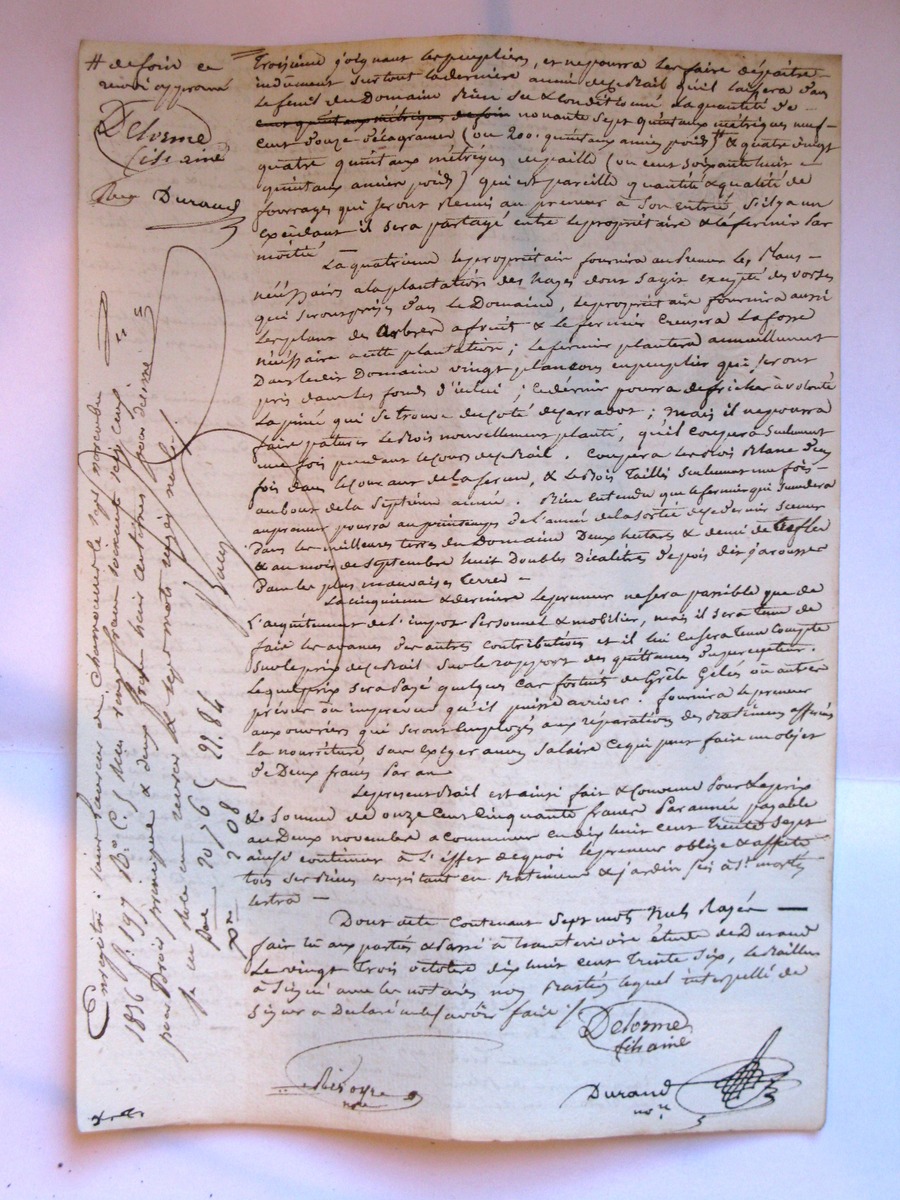 # de foin ce
renvoi approuvé
Delorme
fils ainé
Durand
troisième joignant les peupliers, et ne pourra les faire dépaître
indument surtout la dernière année de ce Bail qu'il laissera dans
le fenil du Domaine Bien sec & conditionné la quantité de
cent quintaux métriques de foin nonante sept quintaux métriques neuf
cent d'ouze décagrames (ou 200. quintaux ancien poids) # & quatre vingt
quatre quintaux métriques de paille (ou cent soixante huit
quintaux ancien poids) qui est pareille quantité & qualité de
fourrages qui seront Remis au preneur à son entrée s'il y a un
excédant il sera partagé entre le propriétaire & le fermier par
moitié
La quatrieme le propriétaire fournira au Preneur les Plans
nécéssaires a la plantation des hayes dont s'agit excepté des
qui seront pris dans le Domaine, le propriétaire fournira aussi
les plans des Arbres a fruit & le fermier Creusera la fosse
nécéssaire a cette plantation; le fermier plantera annuellement
Dans ledit Domaine vingt plançons en peuplier qui seront
pris dans les fonds d'icelui; ce dernier pourra defricher à volonté
la pinée qui se trouve du coté ; mais il ne pourra
faire paturer le Bois nouvellement planté, qu'il coupera seulement
une fois pendant le cours de ce Bail. Coupera les Bois Blanc deux
fois dans le courant de la ferme, & le Bois Taillis seulement une fois
au bout de la Septième année. Bien entendu que le fermier qui succedera
au preneur pourra au printemps de l'année de la sortie de ce dernier semer
dans les meilleures terres du Domaine Deux hectares & demi de treffle
& au mois de Septembre huit Doubles Décalitres de pois dis jarousses
Dans les plus mauvaises terres
La cinquieme & derniere le preneur ne sera passible que de
l'acquittement de l'impot Personnel & mobilier, mais il sera tenu de
faire les avances des autres contributions et il lui en sera tenu compte
sur le prix de ce Bail sur le rapport des quittances du percepteur.
Lequel prix sera Payé quelques cas fortuit de Grêle Gelées ou autres
prévus ou imprevus qu'il puisse arriver. fournira le preneur
aux ouvriers qui seront employés aux réparations des Batimens affermés
la nourriture, sans exiger aucun salaire ce qui peut faire un objet
de Deux francs Par an
Le present Bail est ainsi fait & Convenu Pour & le prix
& le Somme de onze Cent Cinquante francs Par année payable
au Deux novembre a commencer en dix huit cent trente sept
ainsi continuer à L'éffet de quoi le preneur oblige & affecte
tous ses Biens consistant en Batimens & jardin sis à St.
Dont acte Contenant Sept mots nuls Rayés
fait lu aux parties & Passé à étude de Durand
Le vingt Trois octobre dix huit cent trente six, le Bailleur
à Signé avec les notaires non Bastés lequel interpellé de
signer a Déclaré ne le savoir faire
Delorme
fils ainé
nore
Durand
nore
Enregistré au Bureau de le sept novembre
1836 fo. 197 Ro. C. 5 Reçu vingt francs soixante seize cent.
pour Droit principal & deux francs huit centimes pour décime
Je un rôle un renvoi & sept mots rayés nuls.
Pal 20 76
Dme 2 08 } 22.84